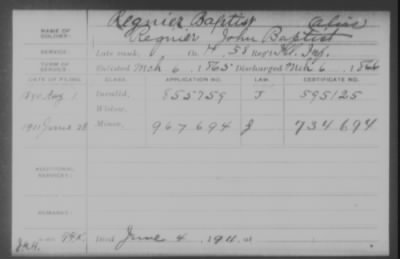 NAME OF SOLDIER: Regnier Baptist Alias
Regnier John Baptist
SERVICE: Late rank, Co. H 58 Reg't Ill. Inf.
TERM OF SERVICE: Enlisted Mch 6, 1865 Discharged Mch 6, 1866
DATE OF FILING. CLASS. APPLICATION NO. LAW. CERTIFICATE NO.
1890 Aug 1 Invalid, 855759 J 595125
Widow,
1911 June 28 Minor, 967694 J 734694
ADDITIONAL SERVICES:
REMARKS:
Died June 4, 1911, at